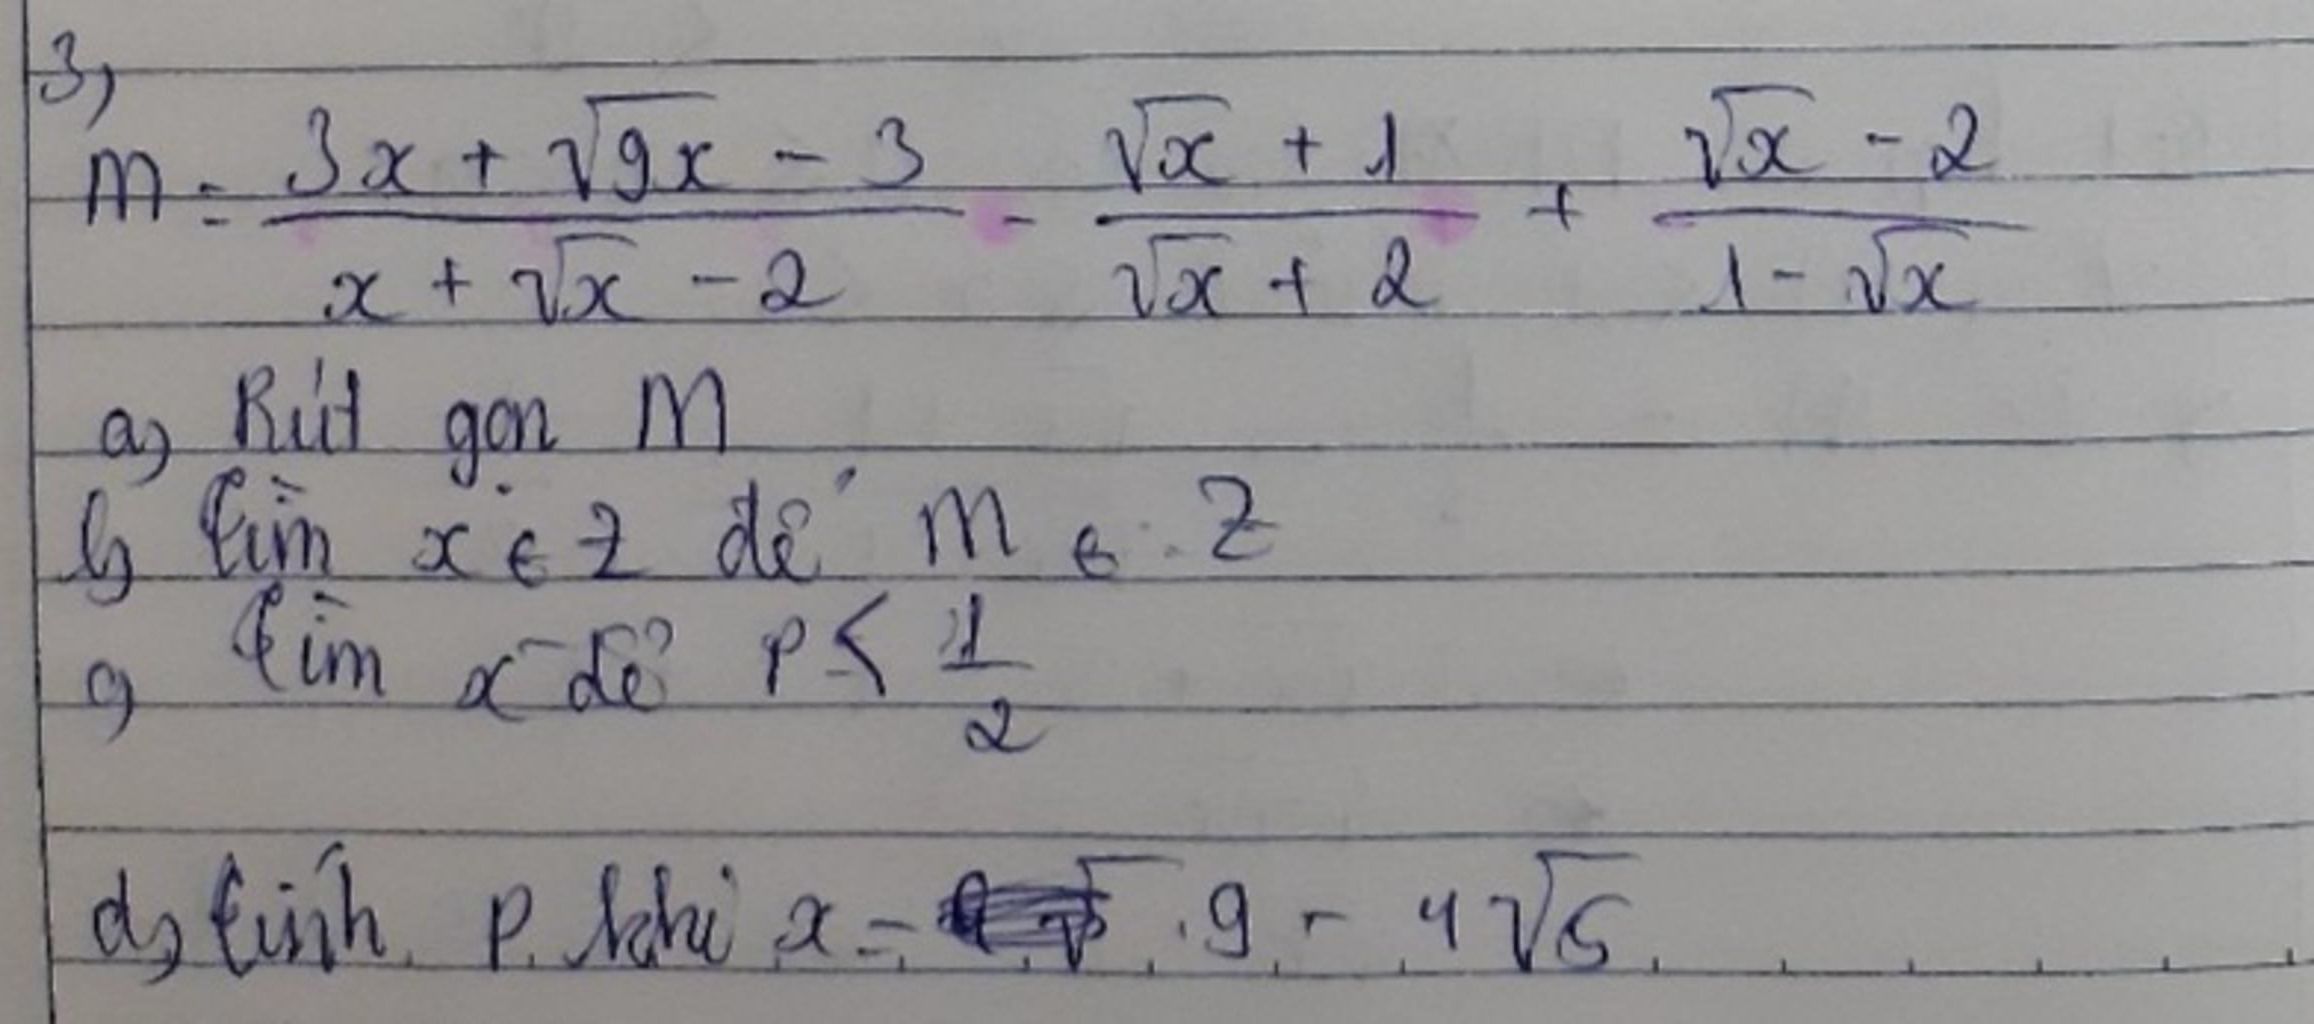 3,
M = \frac{3x + \sqrt{9x} - 3}{x + \sqrt{x} - 2} - \frac{\sqrt{x} + 1}{\sqrt{x} + 2} + \frac{\sqrt{x} - 2}{1 - \sqrt{x}}
a, Rút gọn M
b, tìm x ∈ Z để M ∈ Z
c, tìm x để P < \frac{1}{2}
d, tính P khi x = 9 - 4\sqrt{5}